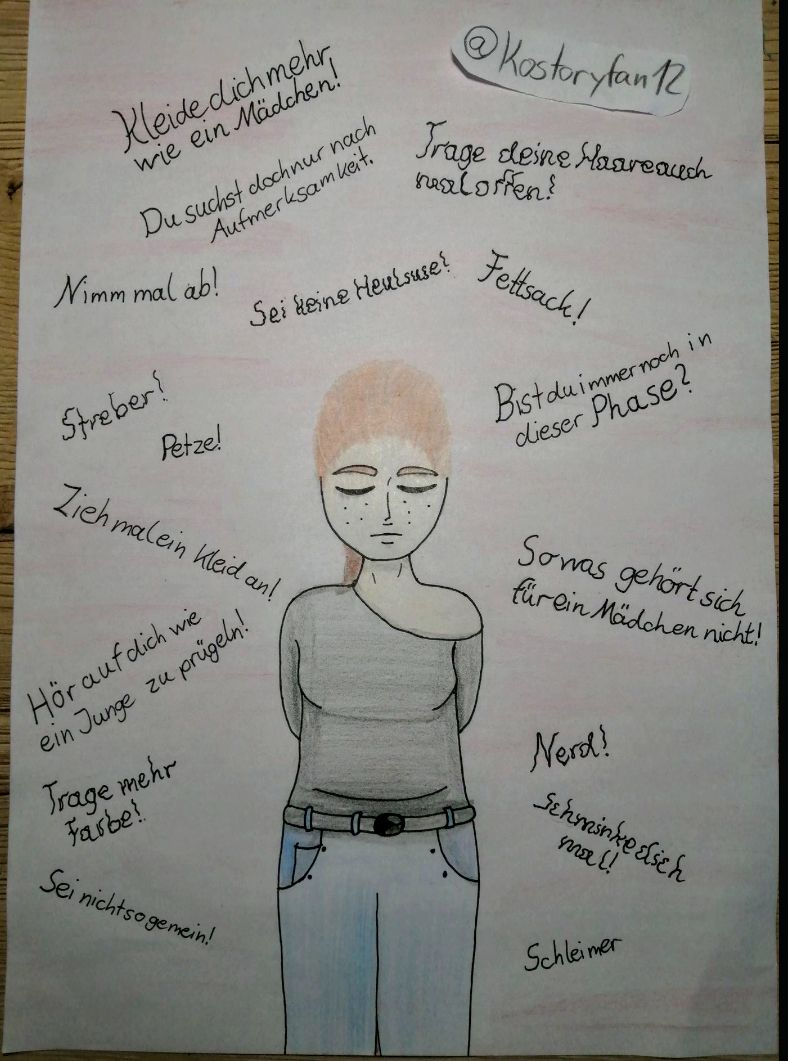 @Kostoryfan12
Kleide dich mehr
wie ein Mädchen!
Du suchst doch nur nach
Aufmerksamkeit.
Trage deine Haare auch
mal offen!
Nimm mal ab!
Sei keine Heulsuse!
Fettsack!
Streber!
Petze!
Bist du immer noch in
dieser Phase?
Zieh mal ein Kleid an!
Sowas gehört sich
für ein Mädchen nicht!
Hör auf dich wie
ein Junge zu prügeln!
Nerd!
Trage mehr
Farbe!
Schminke dich
mal!
Sei nicht so gemein!
Schleimer